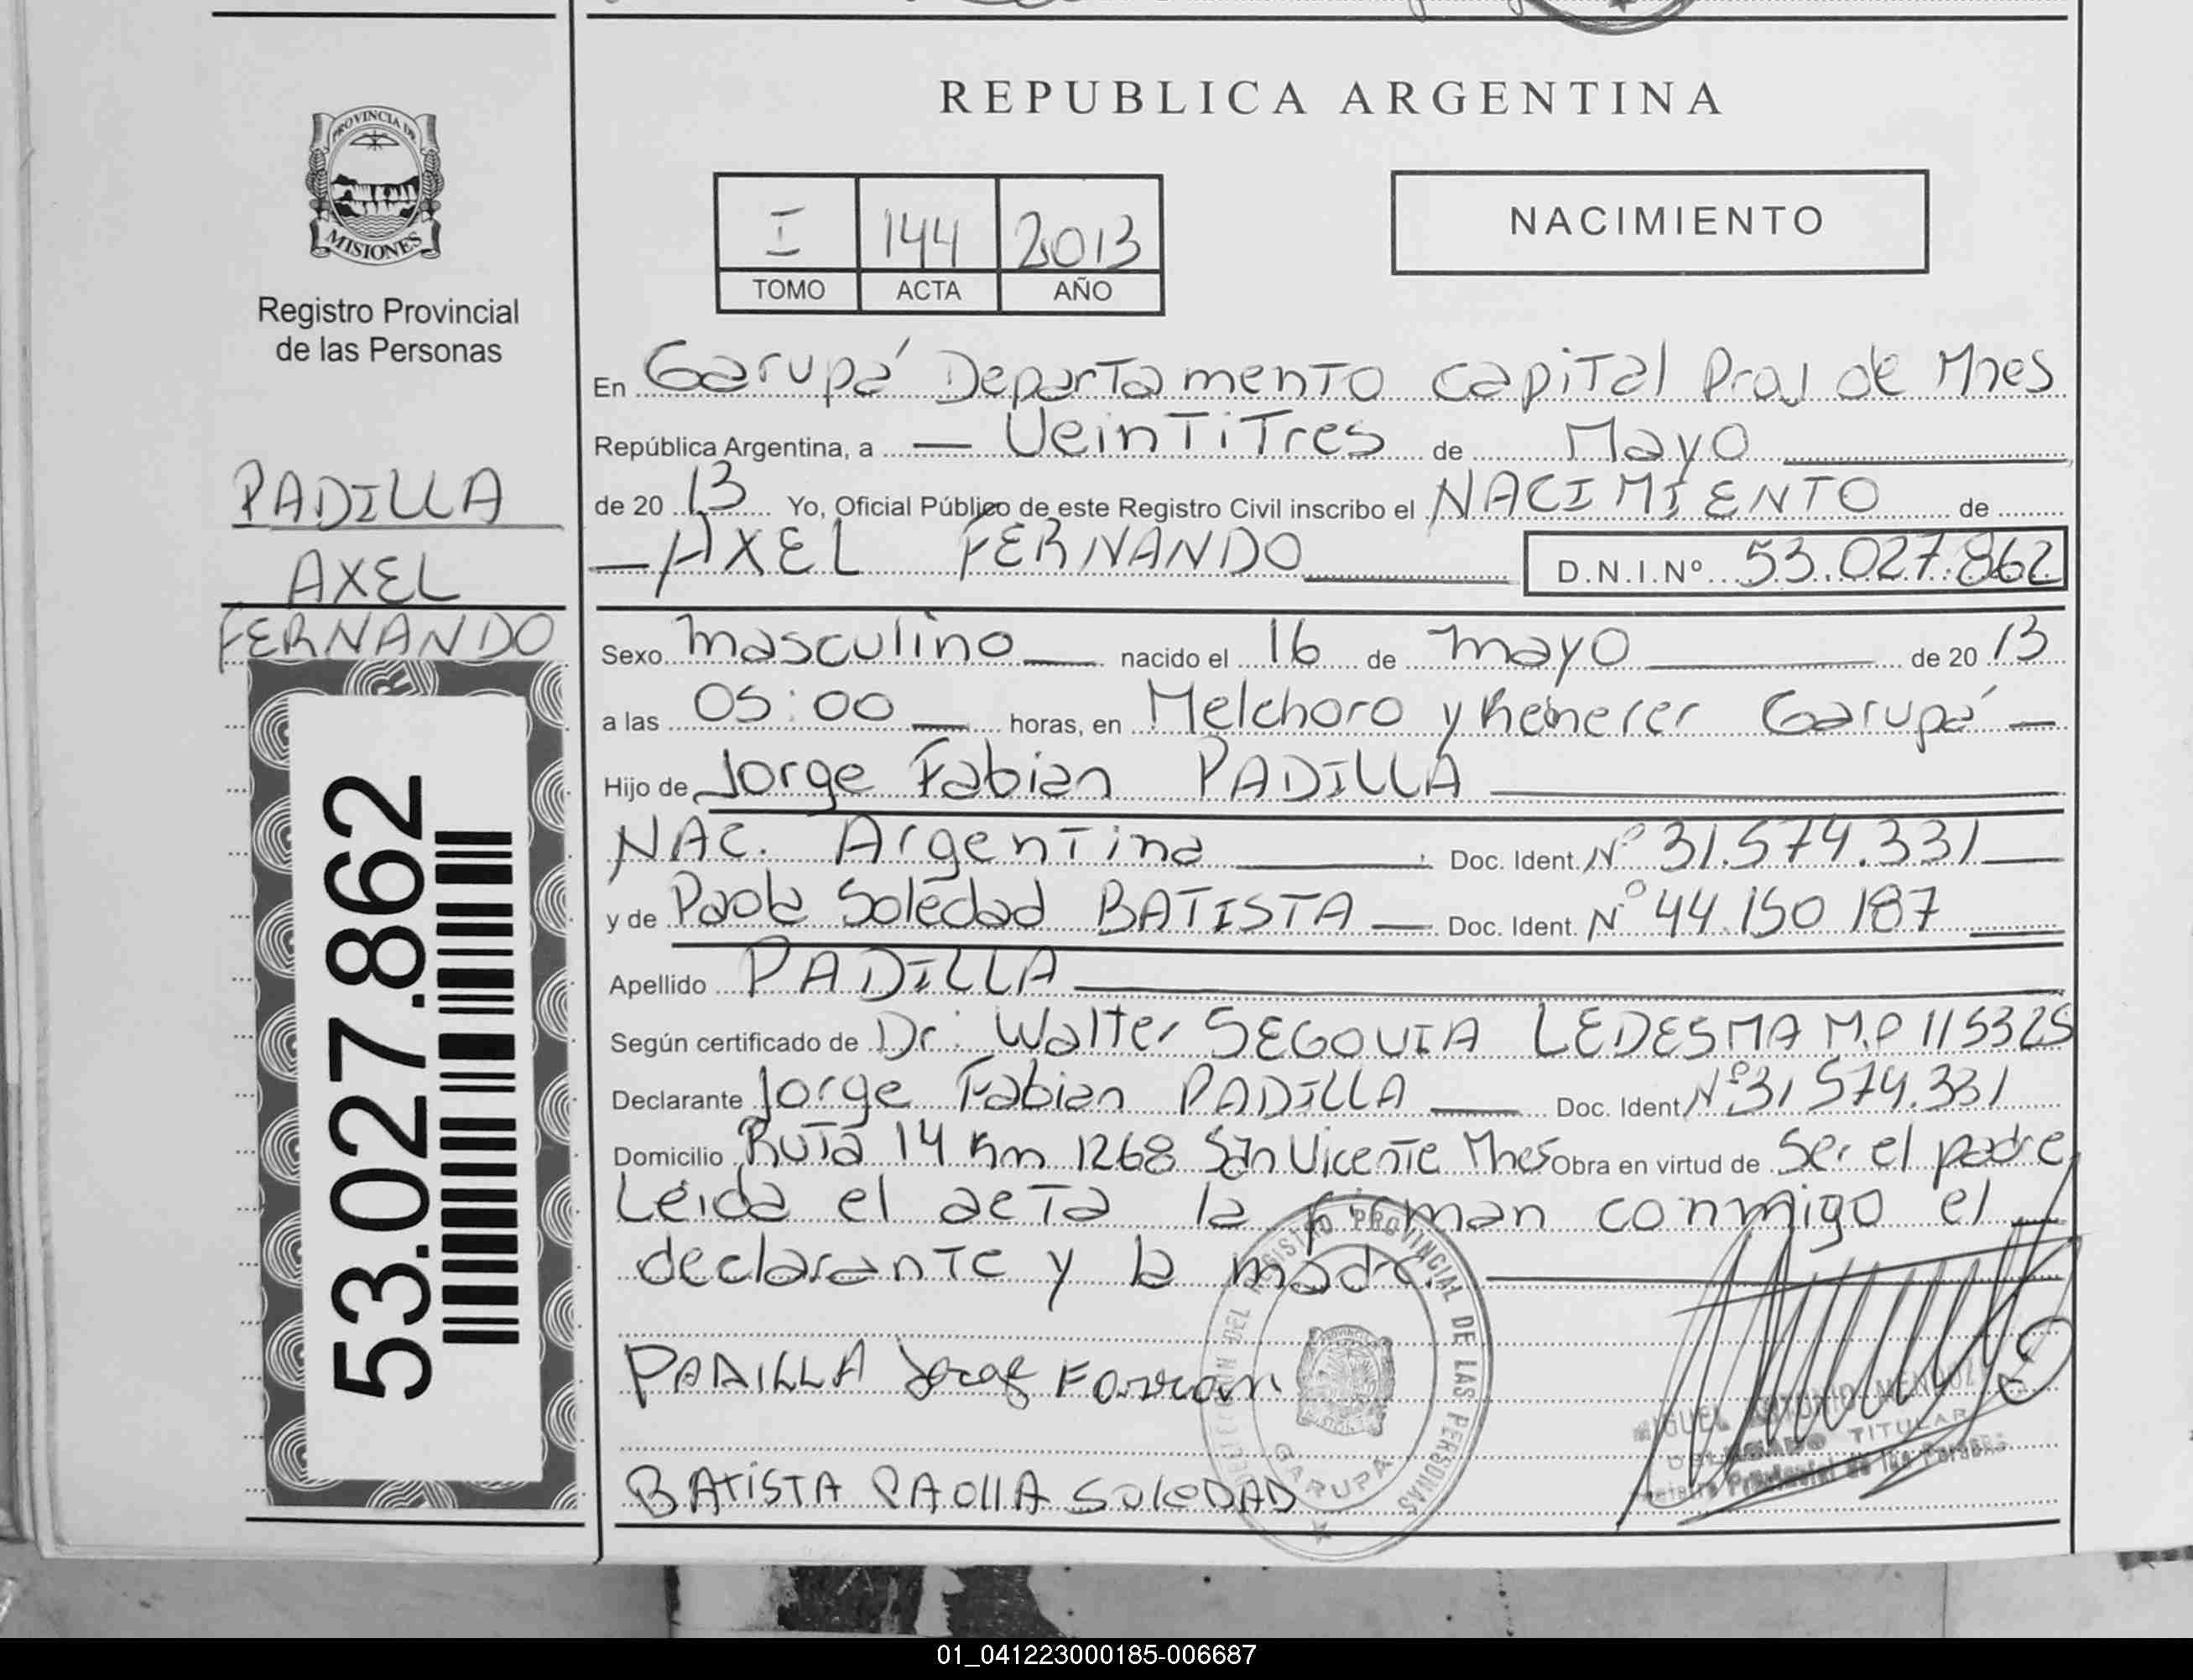 REPUBLICA ARGENTINA
PROVINCIA DE
MISIONES
Registro Provincial
de las Personas
PADILLA
AXEL
FERNANDO
53.027.862
I 144 2013
TOMO ACTA AÑO
NACIMIENTO
En Garupá Departamento Capital Prov de Mnes
República Argentina, a — Veintitres de Mayo
de 20 13 Yo, Oficial Público de este Registro Civil inscribo el NACIMIENTO de
— AXEL FERNANDO D.N.I.Nº 53.027.862
Sexo masculino nacido el 16 de mayo de 20 13
a las 05:00 horas, en Melchoro y Garupá —
Hijo de Jorge Fabian PADILLA
NAC. Argentina Doc. Ident. Nº 31.574.331
y de Paola Soledad BATISTA — Doc. Ident. Nº 44.150 187
Apellido PADILLA
Según certificado de Dr. Walter SEGOVIA LEDESMA M.P 115325
Declarante Jorge Fabian PADILLA Doc. Ident Nº 31 574.331
Domicilio Ruta 14 Km 1268 San Vicente Mnes Obra en virtud de Ser el padre
Leida el acta la firman conmigo el
declarante y la madre.
PADILLA Jorge Fabian
BATISTA PAOllA SOleDAD
DEL REGISTRO PROVINCIAL DE LAS PERSONAS
GARUPA
MIGUEL ANTONIO MENDOZA
DELEGADO TITULAR
Provincial de las Personas
01_041223000185-006687